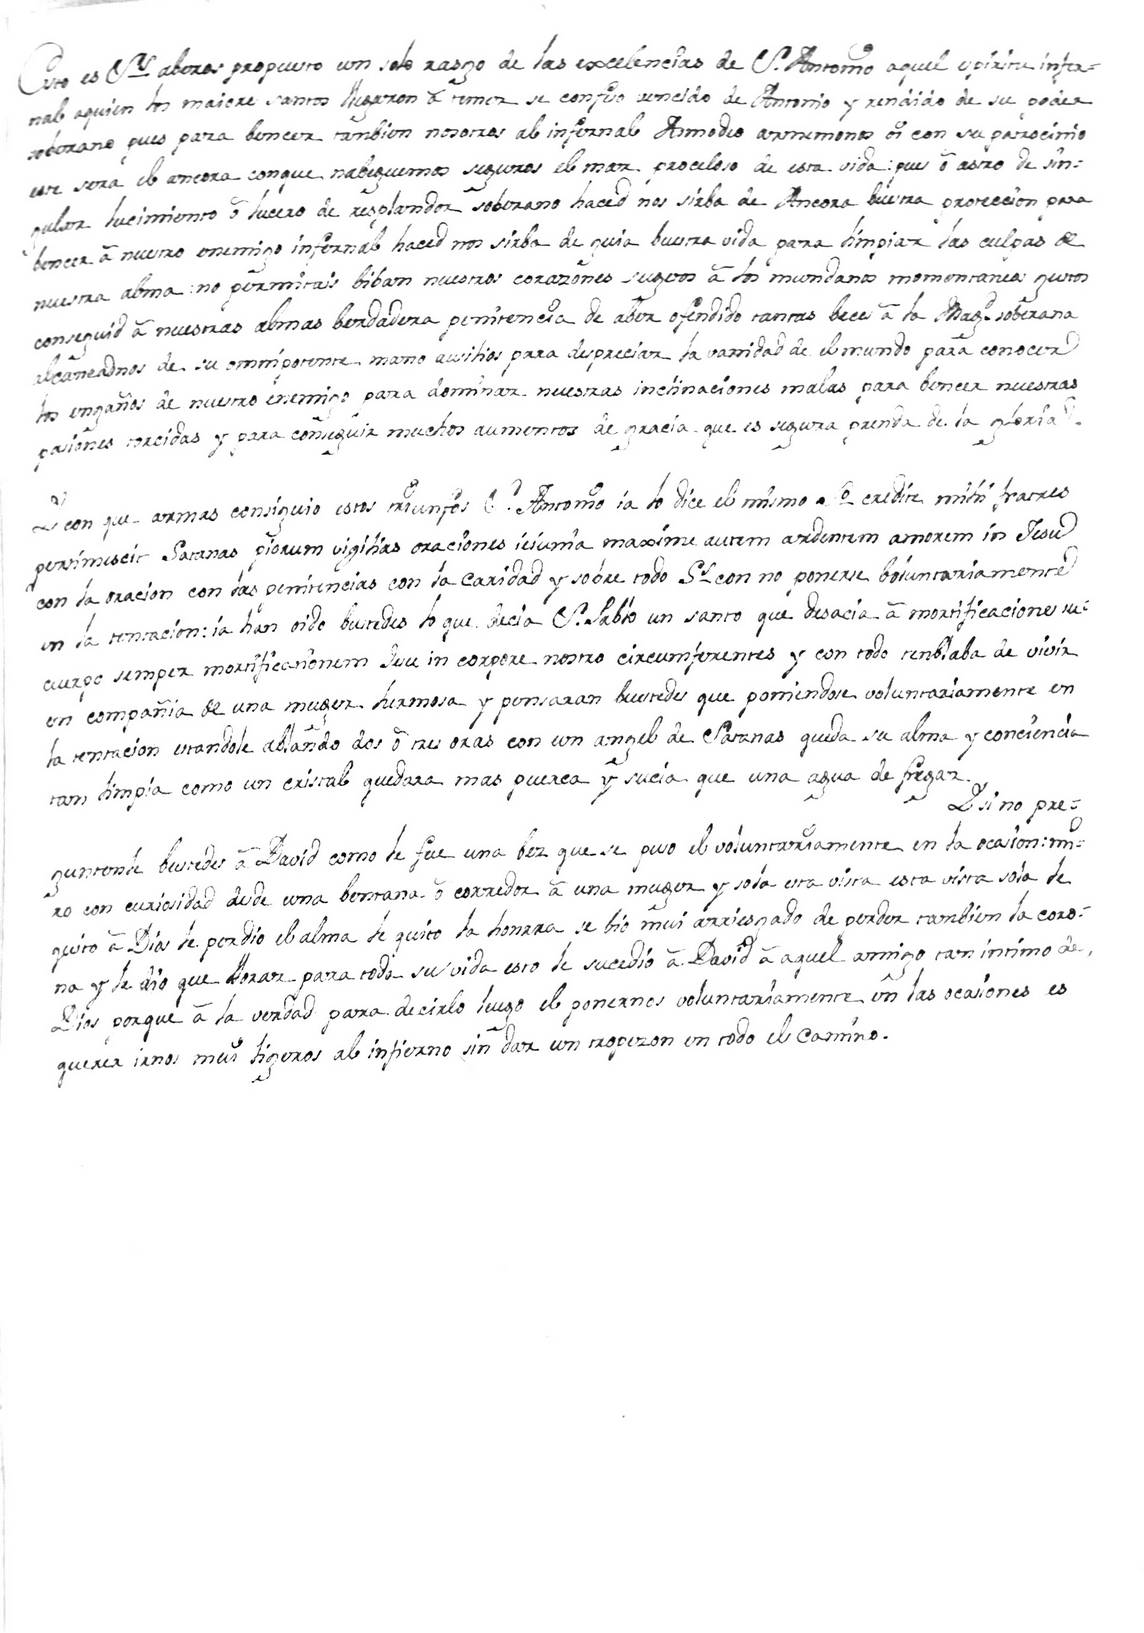 Esto es Srs aberos propuesto un solo rasgo de las excelencias de S. Antonio aquel espiritu infer-
nal aquien los maiores santos llegaron â temer se confeso vencido de Antonio y rendido de su poder
soberano pues para bencer tambien nosotros al infernal Asmodeo armemonos oi con su patrocinio
este sera el ancora conque nabeguemos seguros el mar proceloso de esta vida: pues ô astro de sin-
gular lucimiento ô lucero de resplandor soberano haced nos sirba de Ancora buestra proteccion para
bencer â nuestro enemigo infernal haced nos sirba de guia buestra vida para limpiar las culpas de
nuestra alma: no permitais biban nuestros corazones sugetos â los mundanos momentaneos gustos
conseguid â nuestras almas berdadera penitencia de aber ofendido tantas beces â la Magd soberana
alcancadnos de su omnipotente mano ausilios para despreciar la vanidad de el mundo para conocer
los engaños de nuestro enemigo para dominar nuestras inclinaciones malas para bencer nuestras
pasiones torcidas y para conseguir muchos aumentos de gracia que es segura prenda de la gloria
Y con que armas consiguio estos triunfos S. Antonio ia lo dice el mismo credite mihi fratres
pertimescit Satanas piorum vigilias oraciones ieiunia maxime autem ardentem amorem in Jesu
con la oracion con las penitencias con la caridad y sobre todo Srs con no ponerse boluntariamente
en la tentacion: ia han oido bustedes lo que decia S. Pablo un santo que desacia â mortificaciones su-
cuerpo semper mortificacionem Jesu in corpore nostro circumferentes y con todo temblaba de vivir
en compañia de una muger hermosa y pensaran bustedes que poniendose voluntariamente en
la tentacion estandole ablando dos ô tres oras con un angel de Satanas queda su alma y conciencia
tam limpia como un cristal quedara mas puerca y sucia que una agua de fregar.
Y si no pre-
guntenle bustedes â David como le fue una bez que se puso el voluntariamente en la ocasion: mi-
ro con curiosidad desde una bentana ô corredor â una muger y sola esta vista esta vista sola le
quito â Dios le perdio el alma le quito la honrra se bio mui arriesgado de perder tambien la coro-
na y le dio que llorar para toda su vida esto le sucedio â David â aquel amigo tan intimo de
Dios porque â la verdad para decirlo luego el ponernos voluntariamente en las ocasiones es
querer irnos mui ligeros al infierno sin dar un tropezon en todo el camino.